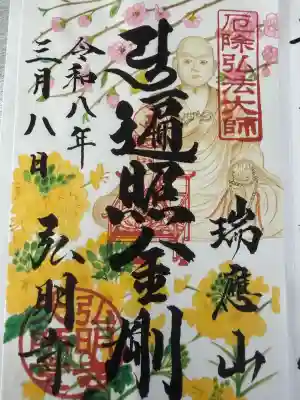 厄除弘法大師
瑞應山
遍照金剛
令和八年
三月八日
弘明寺